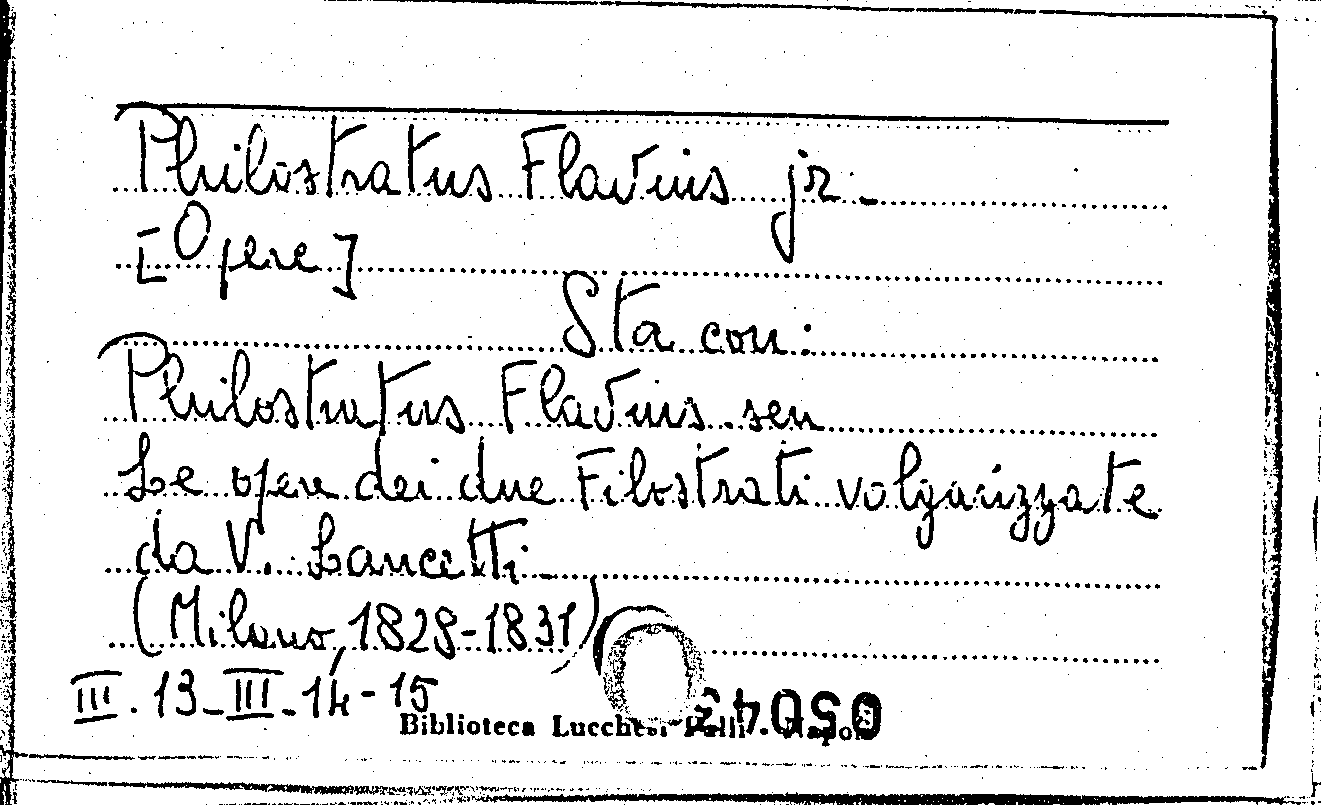 Philostratus Flavius jr.
[Opere]
Sta con:
Philostratus Flavius sen
Le opere dei due Filostrati volgarizzate
da V. Lancetti
(Milano, 1828-1831)
III. 13-III-14-15
Biblioteca Lucchesi-Palli - Napoli